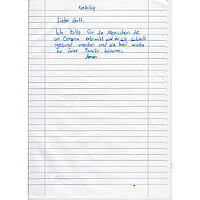 Fürbitte
Lieber Gott,
Ich bitte für die Menschen die
an Corona erkrankt sind das sie schnell
gesund werden und sie bald wieder
zu ihrer Familie können.
Amen